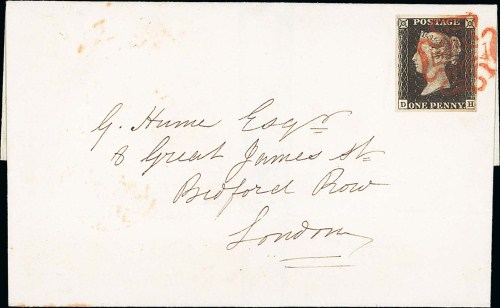 POSTAGE
D ONE PENNY H
G. Hume Esqr
8 Great James St
Bedford Row
London